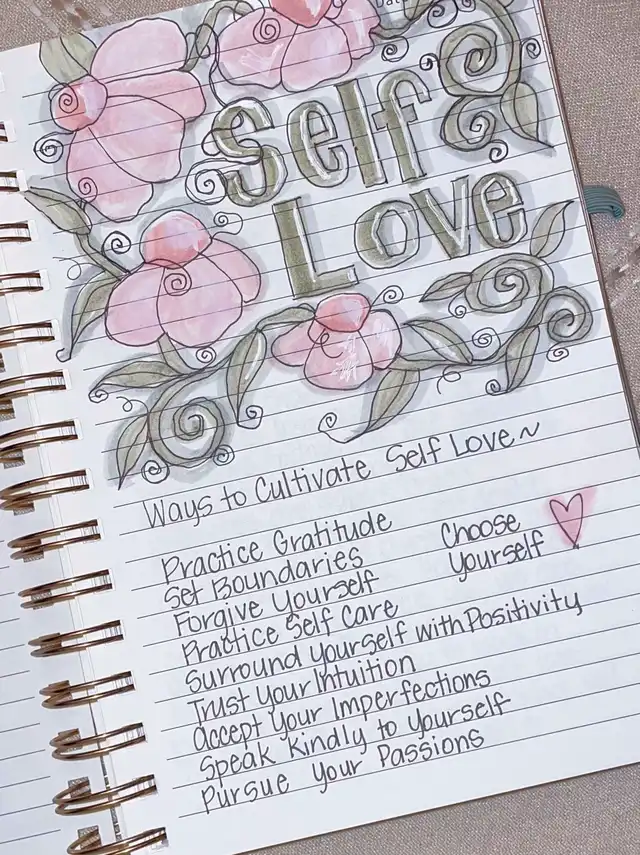 Self
Love
Ways to Cultivate Self Love~
Practice Gratitude
Set Boundaries
Forgive Yourself
Practice Self Care
Surround yourself with Positivity
Trust your Intuition
Accept your Imperfections
Speak kindly to yourself
Pursue your Passions
Choose
yourself